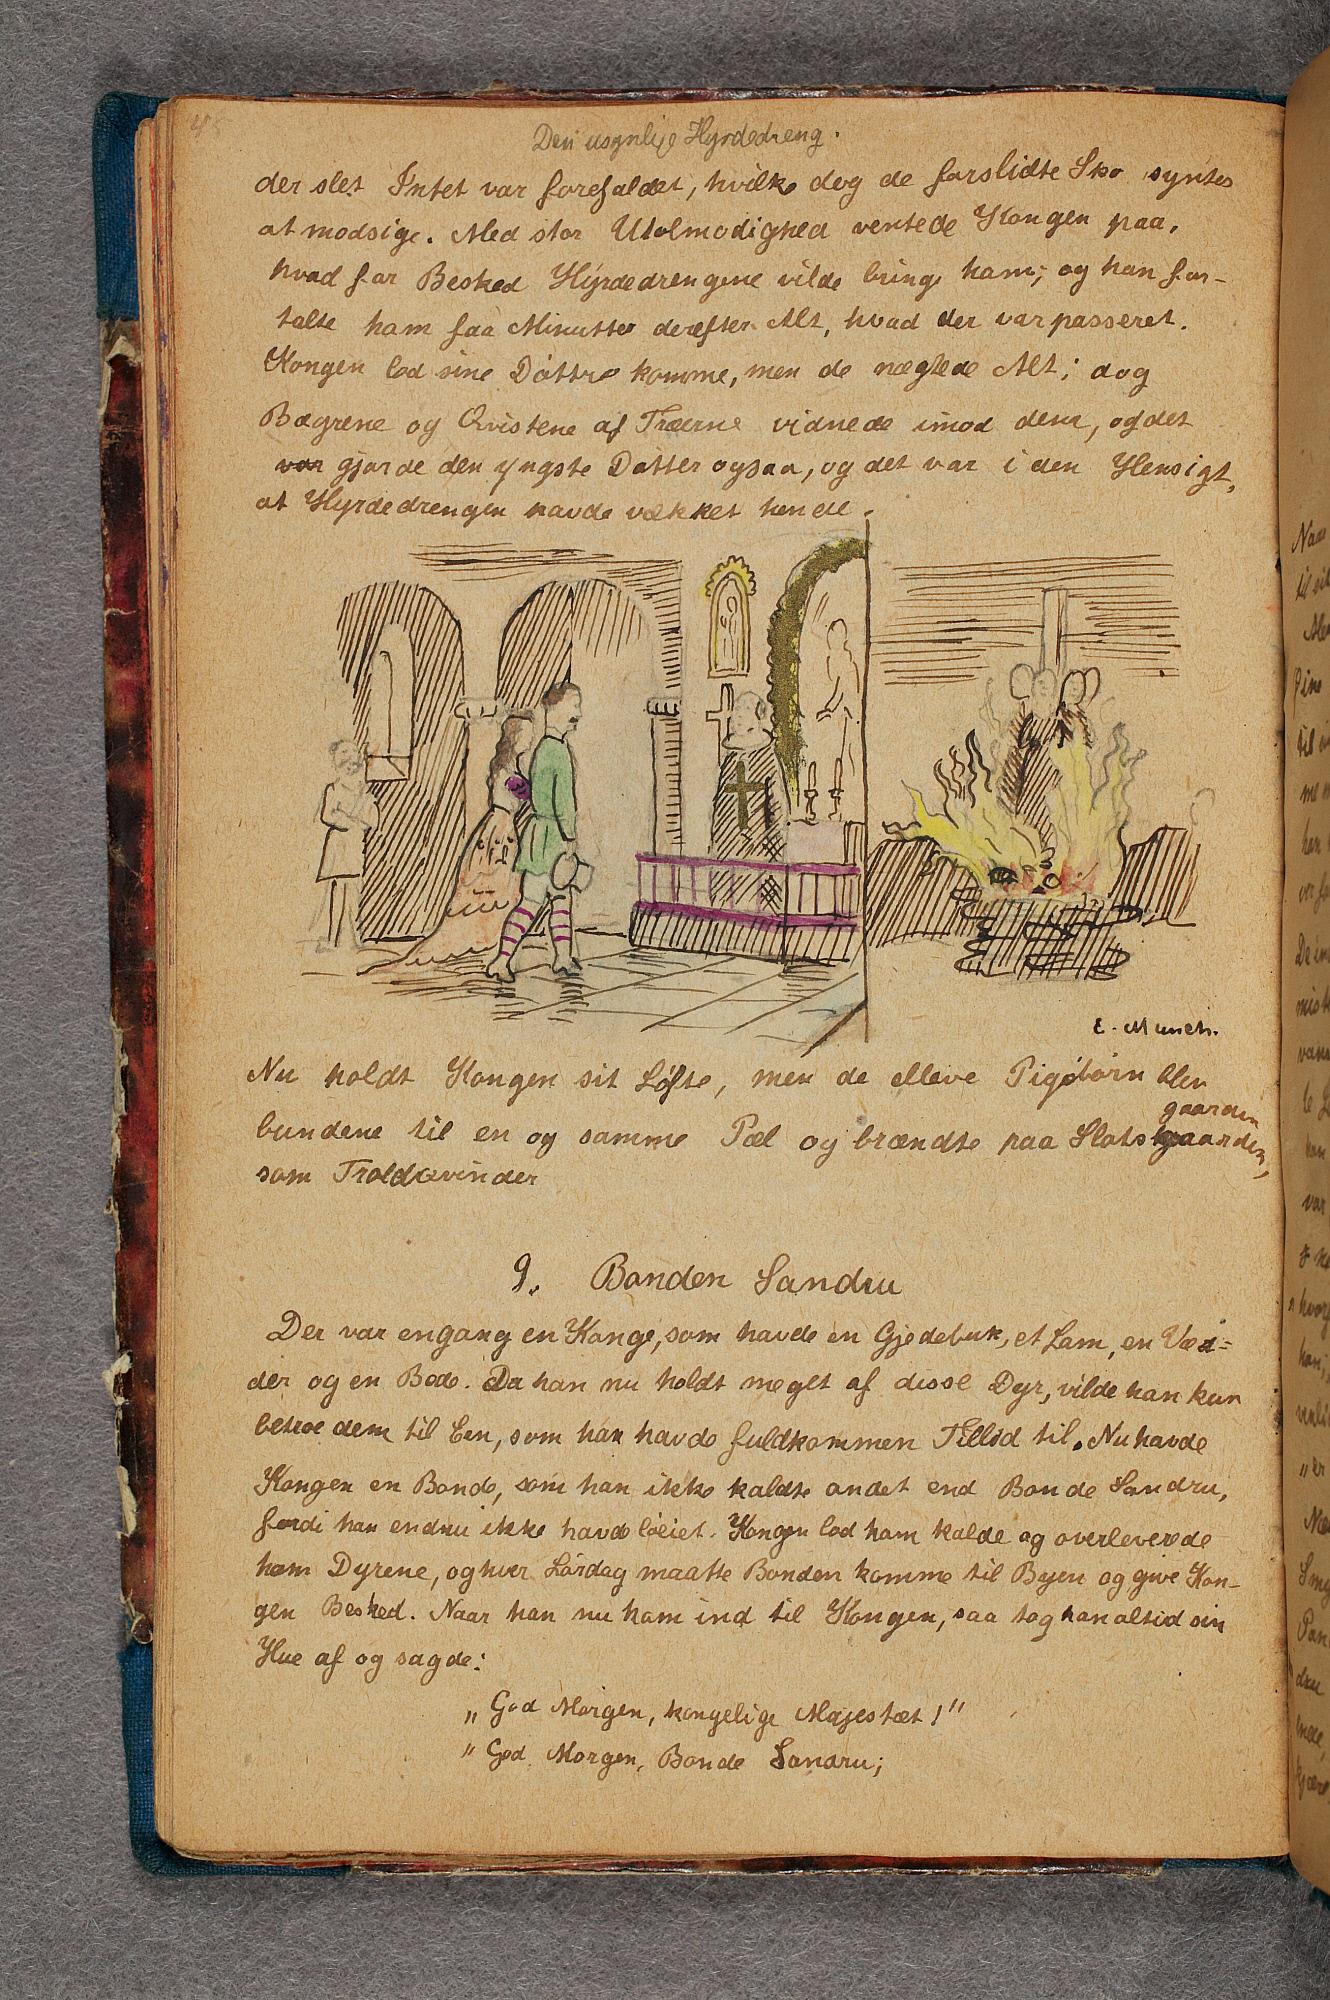 48
Den usynlige Hyrdedreng.
der slet Intet var forefaldet, hvilke dog de forslidte Sko syntes
at modsige. Med stor Utolmodighed ventede Kongen paa,
hvad for Besked Hyrdedrengene vilde bringe ham; og han for-
talte ham faa Minutter derefter Alt, hvad der var passeret.
Kongen lod sine Døttre komme, men de nægtede Alt; dog
Bægrene og Qvistene af Træerne vidnede imod dem, og det
var gjorde den yngste Datter ogsaa, og det var i den Hensigt,
at Hyrdedrengen havde vækket hende.
E. Munch.
Nu holdt Kongen sit Løfte, men de elleve Pigebørn blev
gaarden
bundene til en og samme Pæl og brændte paa Slotsgaarden,
som Troldqvinder
9. Bonden Sandru
Der var engang en Konge, som havde en Gjedebuk, et Lam, en Væd=
der og en Bede. Da han nu holdt meget af disse Dyr, vilde han kun
betroe dem til Een, som han havde fuldkommen Tillid til. Nu havde
Kongen en Bonde, som han ikke kaldte andet end Bonde Sandru,
fordi han endnu ikke havde løiet. Kongen lod ham kalde og overleverede
ham Dyrene, og hver Lørdag maatte Bonden komme til Byen og give Kon-
gen Besked. Naar han nu kom ind til Kongen, saa tog han altid sin
Hue af og sagde:
„God Morgen, kongelige Majestæt!"
"God Morgen, Bonde Sandru;